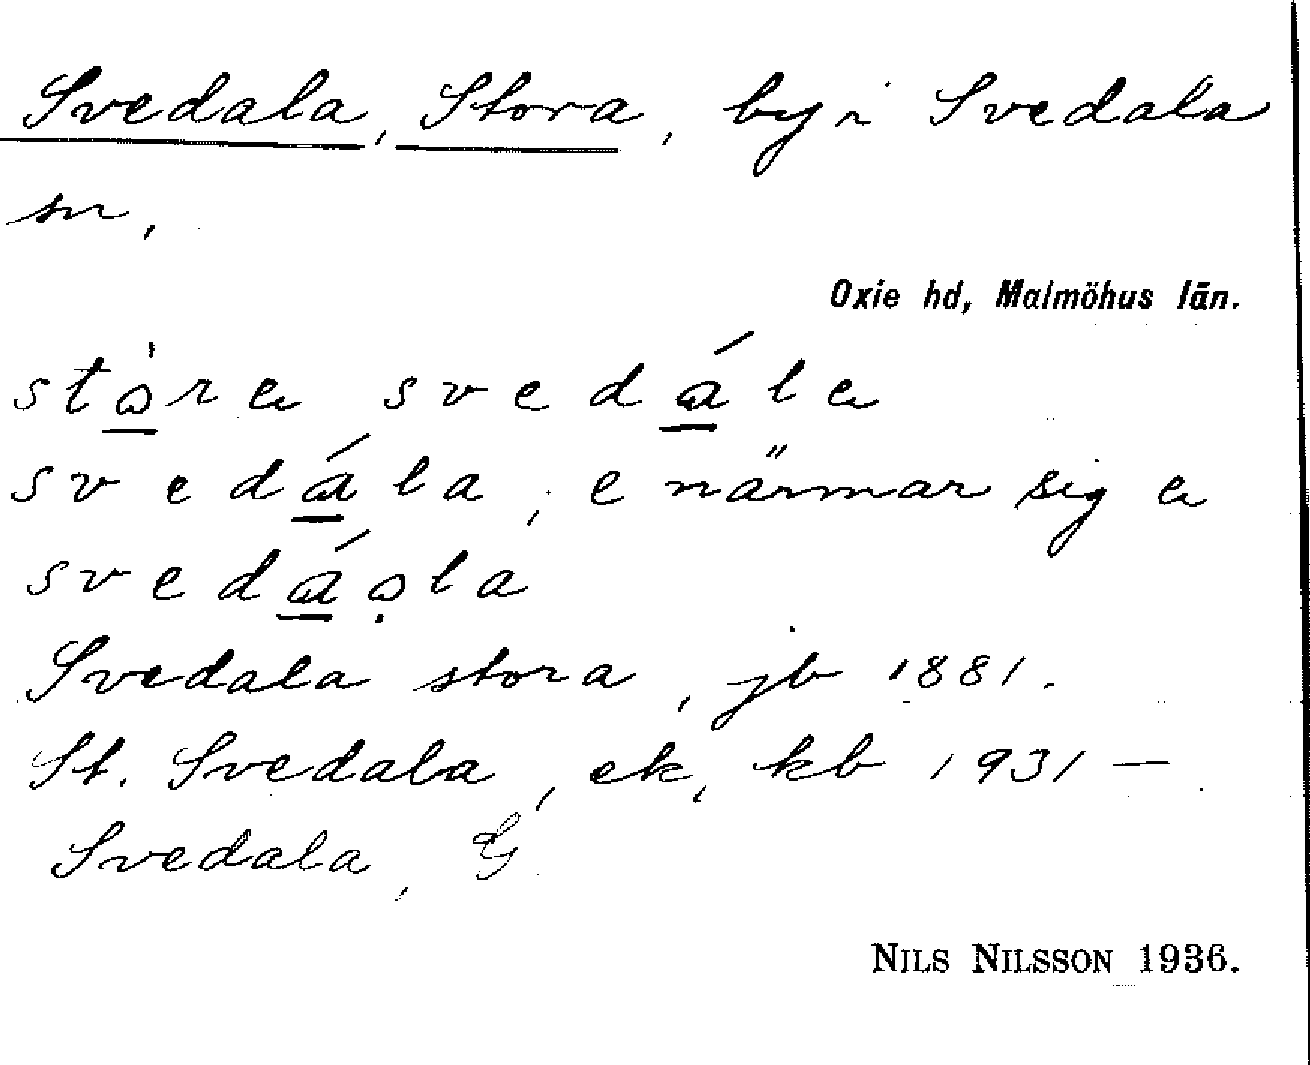 Svedala, Stora, by i Svedala
sn,
Oxie hd, Malmöhus län.
stòra svedála
svedála, e närmar sig a
svedáola
Svedala stora, jb 1881.
St. Svedala, ek, kb 1931 —
Svedala, G
NILS NILSSON 1936.